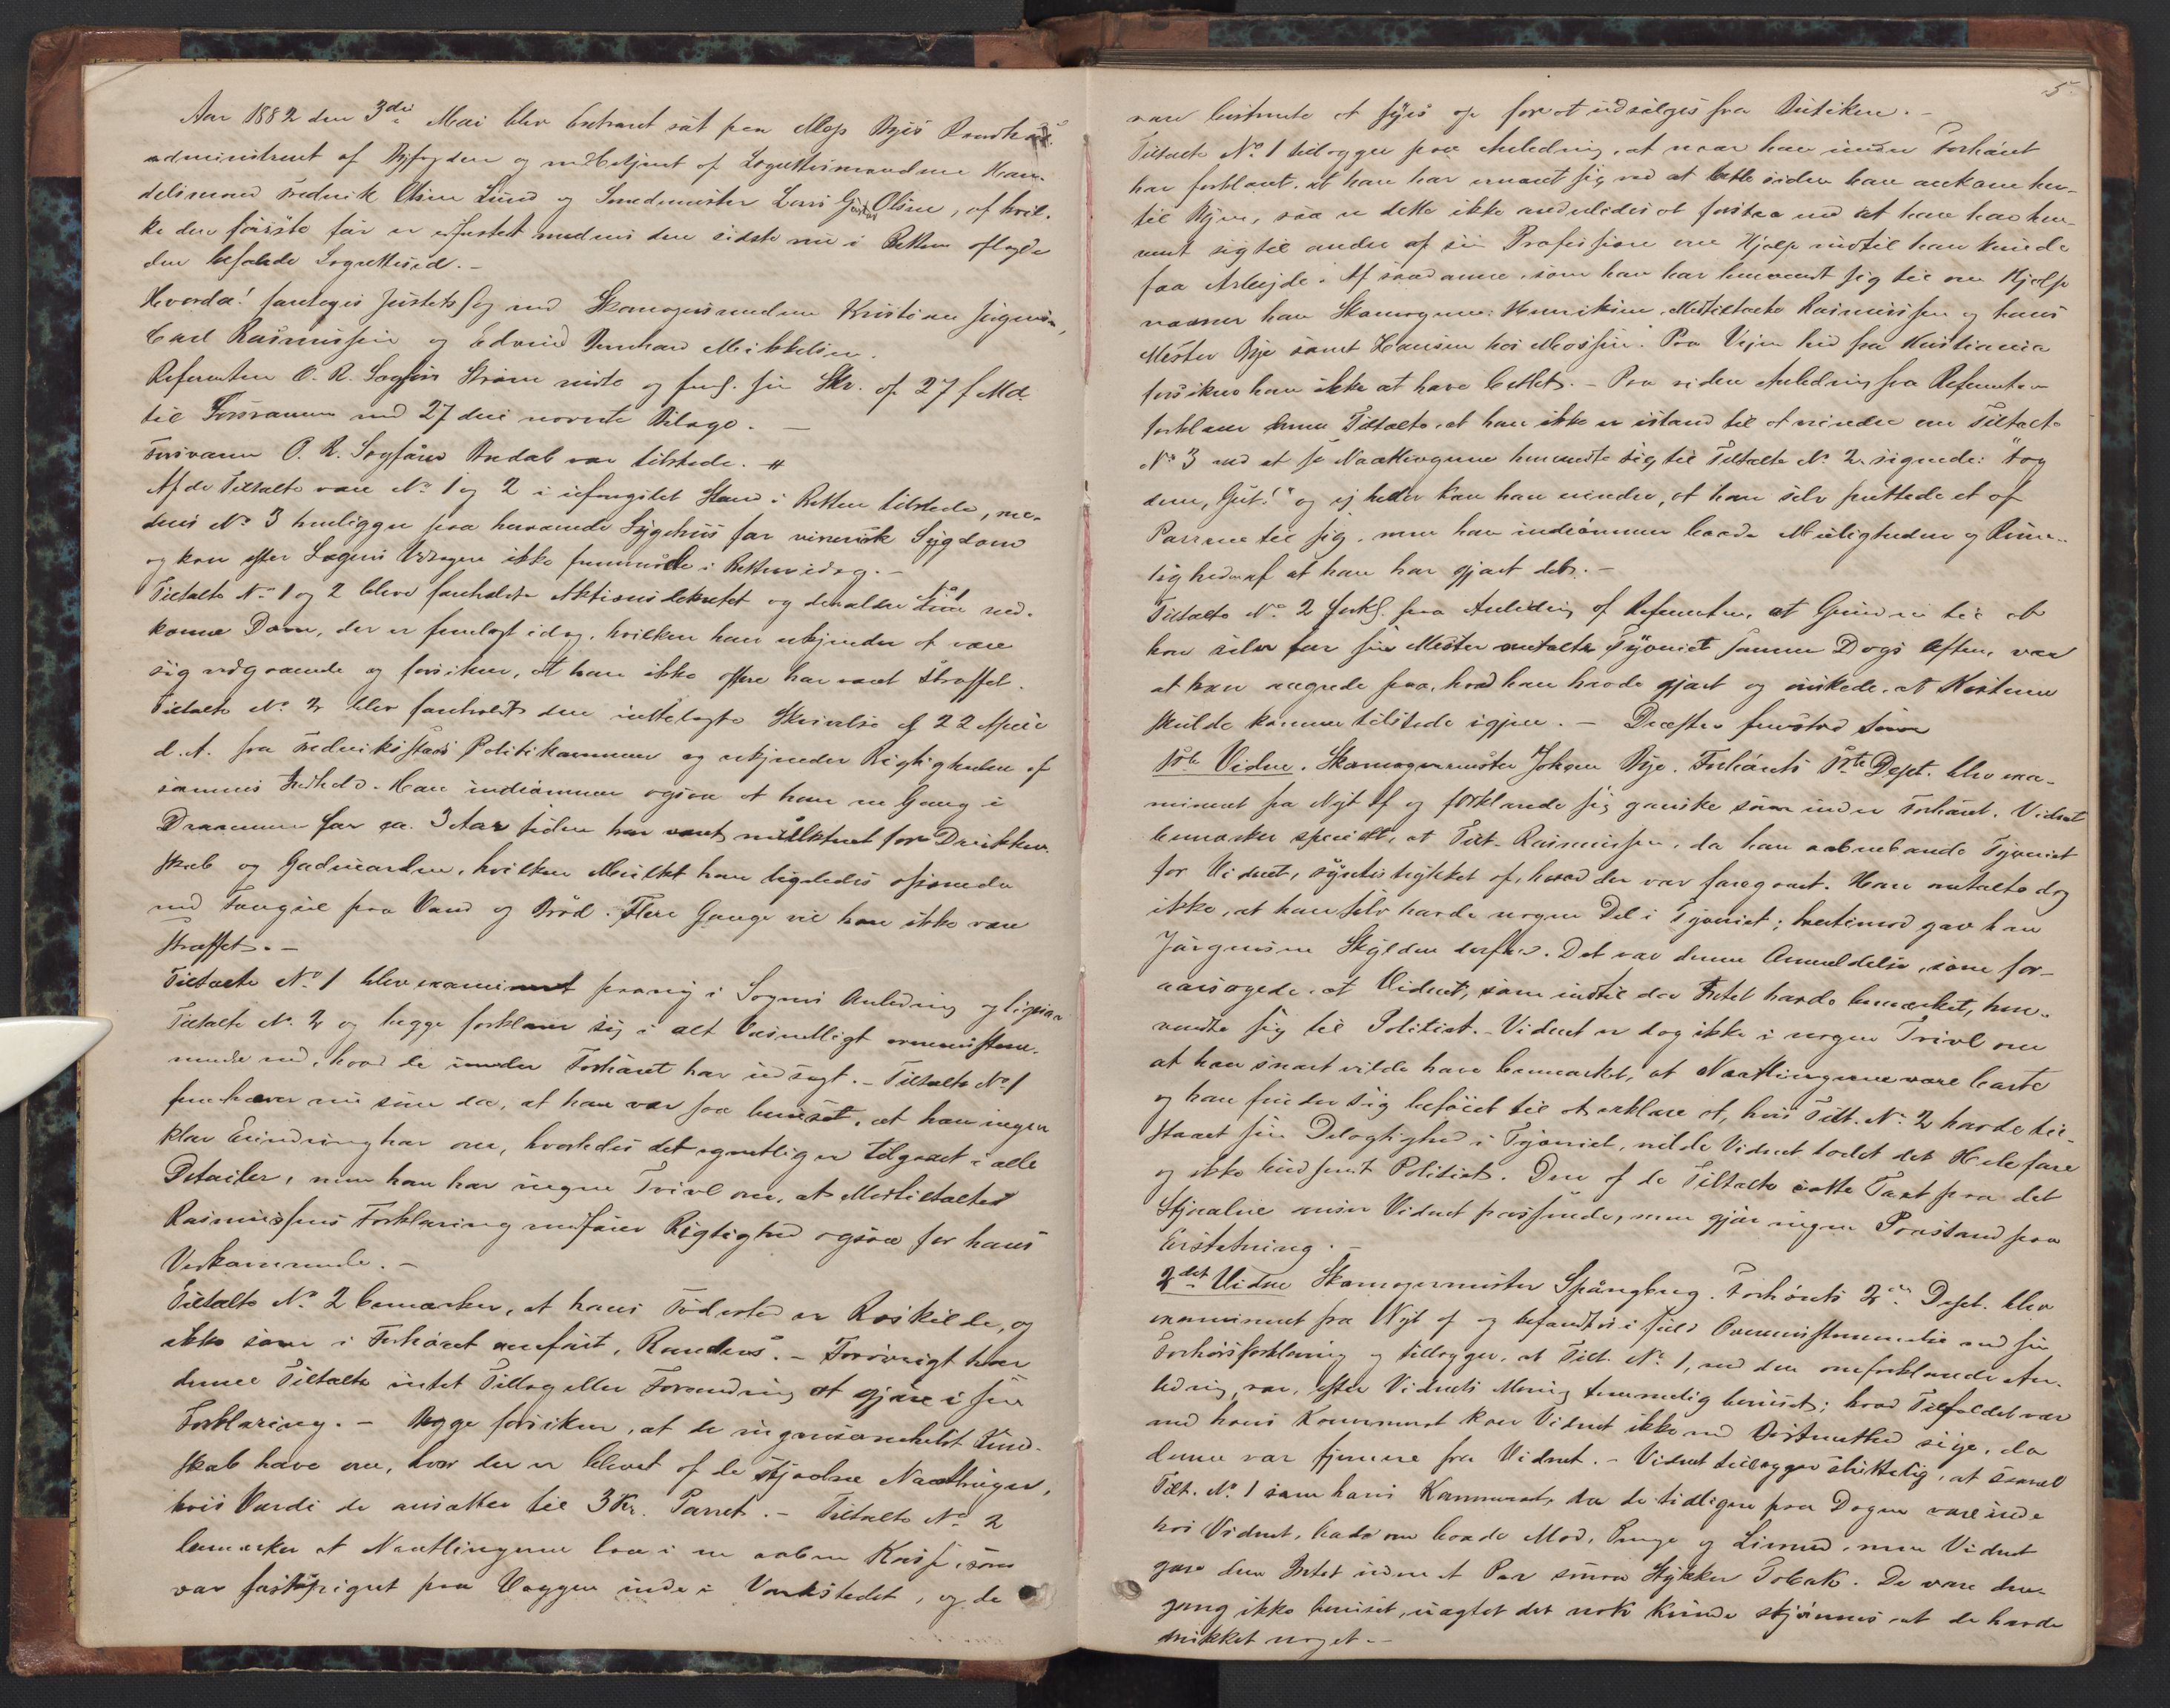 Aar 1882 den 3die Mai blev Extraret sat paa Moss Byes Raadhus
administreret af Byfogden og medbetjent af Lagrettesmændene Han-
delsmand Fredrik Olsen Lund og Smedmester Lars Olsen, af hvil-
ke den første før er edfæstet medens den sidste nu i Retten aflagde
den befalede Lagrettesed. -
Hvorda! foretoges Justitssag mod Skomagersvendene Kristian Jørgensen,
Carl Rasmussen og Edvard Bernhard Mikkelsen.
Referenten O. R. Sagfører Strøm mødte og freml. sin Skr. af 27 f. Md.
til Forsvareren med 27 deri nævnte Bilage. -
Forsvareren O. R. Sagfører Bredal var tilstede. #
Af de Tiltalte vare No. 1 og 2 i ufængslet Stand i Retten tilstede, me-
dens No 3 henligger paa herværende Sygehus for venerisk Sygdom
og kan efter Lægens Udsagn ikke fremmøde i Retten idag. -
Tiltalte No 1 og 2 bleve foreholdte Aktionsdekretet og derefter No 1 ved-
komne Dom, der er fremlagt idag, hvilken han erkjender at være
sig vedgaaende og forsikrer, at han ikke oftere har været straffet.
Tiltalte No. 2 blev foreholdt den indtelagte Skrivelse af 22 April
d. A. fra Fredriksstads Politikammer og erkjender Rigtigheden af
sammes Indhold. Han indrømmer ogsaa at han en Gang i
Drammen for ca. 3 Aar siden har været mulkteret for Drukken-
skab og Gadeuorden, hvilken Mulkt han ligeledes afsonede
med Fængsel paa Vand og Brød. Flere Gange vil han ikke være
straffet. -
Tiltalte No. 1 blev examineret paany i Sagens Anledning og ligesaa
Tiltalte No. 2 og begge forklarer sig i alt Væsentligt overensstem-
mende med, hvad de under Forhøret har udsagt. - Tiltalte No 1
fremhæver nu som da, at han var saa beruset, at han ingen
klar Erindring har om, hvorledes det egentlig er tilgaaet i alle
Detailer, men han har ingen Tvivl om, at Medtiltaltes
Rasmussens Forklaring medfører Rigtighed ogsaa for hans
Vedkommende. -
Tiltalte No. 2 bemærker, at hans Fødested er Roskilde, og
ikke som i Forhøret anført, Randers. - Forøvrigt har
denne Tiltalte intet Tillæg eller Forandring at gjøre i sin
Forklaring. - Begge forsikrer, at de ingensomhelst Kund-
skab have om, hvor der er blevet af de stjaalne Naatlinger,
hvis Værdi de ansætter til 3 Kr. Parret. - Tiltalte No 2
bemærker at Naatlingerne laa i en aaben Kasse, som
var fastspigret paa Væggen inde i Værkstedet, og de
5
vare bestemte at syes op for at udsælges fra Butiken. -
Tiltalte No. 1 tilægger paa Anledning, at naar han under Forhøret
har forklaret, at han har ernæret sig ved at betle siden han ankom her-
til Byen, saa er dette ikke anderledes at forstaa end at han har hen-
vendt sig til andre af sin Profession om Hjælp indtil han kunde
faa Arbejde. Af saadanne, som han har henvendt sig til om Hjælp
nævner han Skomagerne: Henriksen, Medtiltalte Rasmussen og hans
Mester Bye samt Hansen hos Mossin. Paa Vejen hid fra Kristiania
forsikrer han ikke at have betlet. - Paa videre Anledning fra Referenten
forklarer denne Tiltalte, at han ikke er istand til at mindes om Tiltalte
No 3 ved at se Naatlingerne henvendte sig til Tiltalte No. 2 sigende: "Tag
dem, Gut!" og ej heller kan han mindes, at han selv puttede et af
Parrene til sig, men han indrømmer baade Muligheden og Rime-
ligheden af at han har gjort det. -
Tiltalte No. 2 forkl. paa Anledning af Referenten, at Grunden til at
han selv for sin Mester omtalte Tyveriet samme Dags Aften, var
at han angrede paa, hvad han havde gjort og ønskede, at Kosterne
skulde komme tilstede igjen. - Derefter fremstod som
1ste Vidne. Skomagermester Johan Bye. Forhørets 1ste Depot. blev exa-
mineret fra Nyt af og forklarede sig ganske som under Forhøret. Vidnet
bemærker specielt, at Tilt. Rasmussen, da han aabenbarede Tyveriet
for Vidnet, syntes ulykket af, hvad der var foregaaet. Han omtalte dog
ikke, at han selv havde nogen Del i Tyveriet; hvertimod gav han
Jørgensen Skylden derfor. Det var denne Anmeldelse, som for-
aarsagede, at Vidnet, som indtil da Intet havde bemærket, hen-
vendte sig til Politiet. - Vidnet er dog ikke i nogen Tvivl om
at han snart vilde have bemærket, at Naatlingerne vare borte
og han finder sig beføiet til at erklære at, hvis Tilt. No. 2 havde til-
staaet sin Delagtighed i Tyveriet, vilde Vidnet ladet det Hele fare
og ikke budsendt Politiet. Den af de Tiltalte satte Taxt paa det
Stjaalne anser Vidnet passende, men gjør ingen Paastand paa
Erstatning. -
2det Vidne Skomagermester Spångberg. Forhørets 2det Depot. blev
examineret fra Nyt af og befandtes i fuld Overensstemmelse med sin
Forhørsforklaring og tillægger, at Tilt. No. 1, ved den omforklarede An-
ledning, var, efter Vidnets Mening temmelig beruset; hvad Tilfældet var
med hans Kammerat kan Vidnet ikke med Bestemthed sige, da
denne var fjernere fra Vidnet. - Vidnet tillægger sluttelig, at saavel
Tilt. No. 1 som hans Kammerat, da de tidligere paa Dagen vare inde
hos Vidnet, bade om baade Mad, Penge og Linned, men Vidnet
gav dem Intet uden et Par smaa Stykker Tobak. De vare den-
gang ikke beruset, uagtet det nok kunde skjønnes at de havde
drukket noget. -